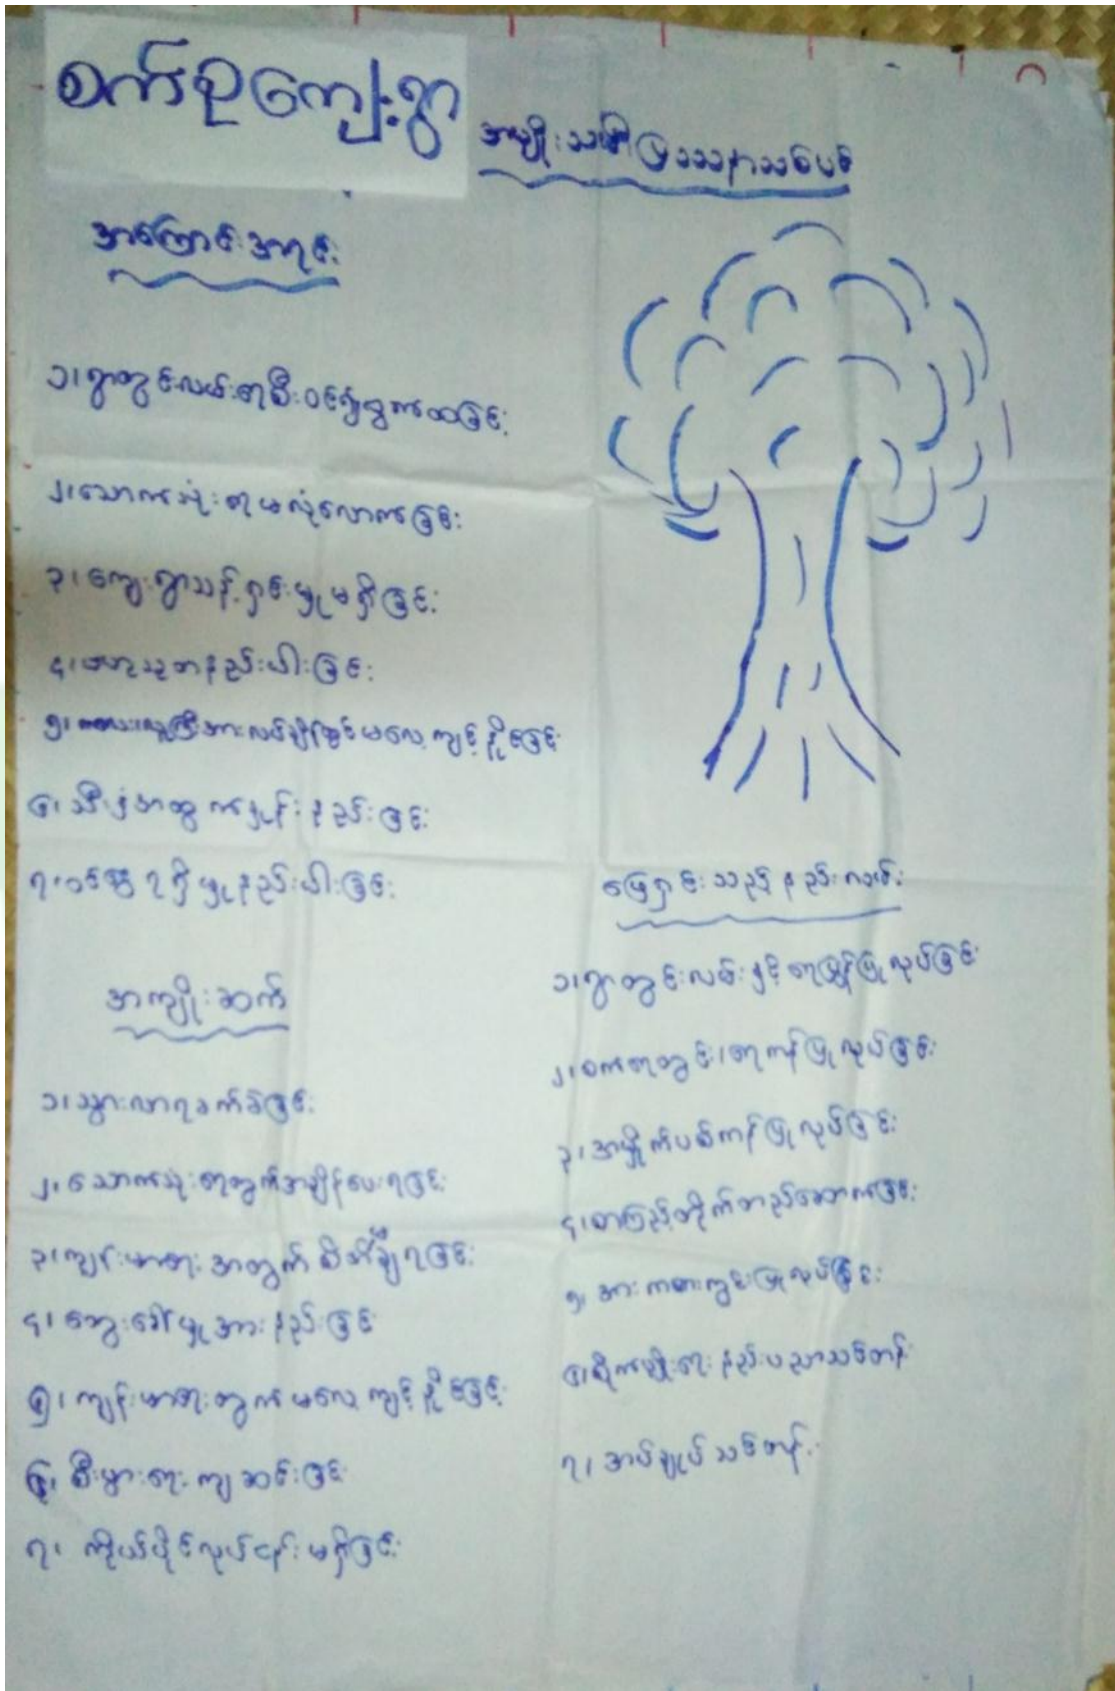 စက်စုကျေးရွာ
အမျိုးသမီးပြဿနာသစ်ပင်
အကြောင်းအရင်း
၁၊ ရွာတွင်းလမ်းရေစီးဝင်၍ပွက်ထခြင်း
၂၊ သောက်သုံးရေမလုံလောက်ခြင်း
၃၊ ကျေးရွာသန့်ရှင်းမှုမရှိခြင်း
၄၊ ဗဟုသုတနည်းပါးခြင်း
၅၊ ကလေးလူကြီးအားလပ်ချိန်တွင်မလေ့ကျင့်နိုင်ခြင်း
၆၊ သီးနှံအထွက်နှုန်းနည်းခြင်း
၇၊ ဝင်ငွေရရှိမှုနည်းပါးခြင်း
အကျိုးဆက်
၁၊ သွားလာရခက်ခဲခြင်း
၂၊ သောက်သုံးရေတွက်အချိန်ပေးရခြင်း
၃၊ ကျန်းမာရေးအတွက်စိတ်ချရခြင်း
၄၊ တွေးခေါ်မှုအားနည်းခြင်း
၅၊ ကျန်းမာရေးတွက်မလေ့ကျင့်နိုင်ခြင်း
၆၊ စီးပွားရေးကျဆင်းခြင်း
၇၊ ကိုယ်ပိုင်လုပ်ငန်းမရှိခြင်း
ဖြေရှင်းသည့်နည်းလမ်း
၁၊ ရွာတွင်းလမ်းနှင့်ရေမြောင်းပြုလုပ်ခြင်း
၂၊ စက်ရေတွင်း၊ ရေကန်ပြုလုပ်ခြင်း
၃၊ အမှိုက်ပစ်ကန်ပြုလုပ်ခြင်း
၄၊ စာကြည့်တိုက်တည်ဆောက်ခြင်း
၅၊ အားကစားကွင်းပြုလုပ်ခြင်း
၆၊ စိုက်ပျိုးရေးနည်းပညာသင်တန်း
၇၊ အပ်ချုပ်သင်တန်း